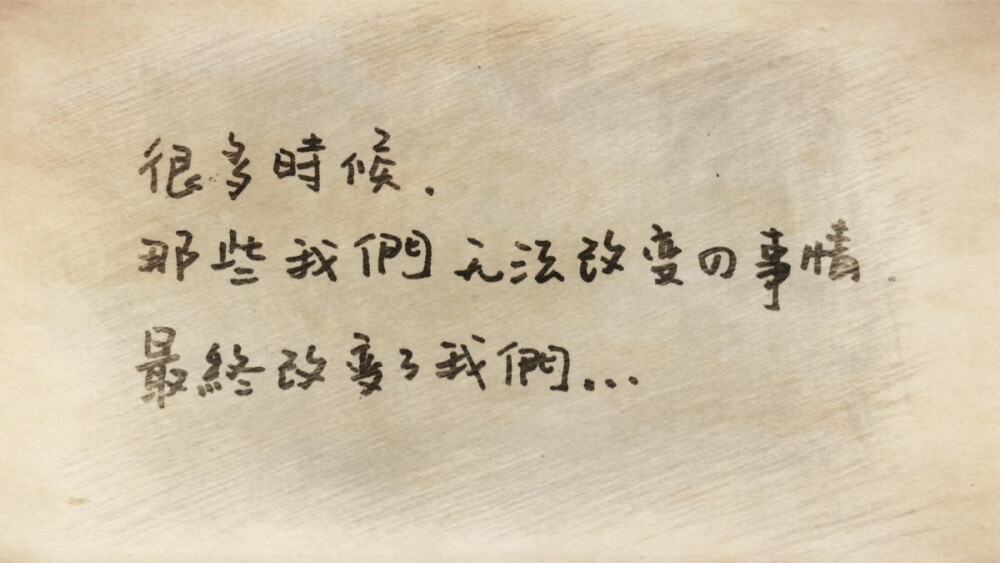 很多時候.
那些我們无法改变の事情.
最終改变了我們...